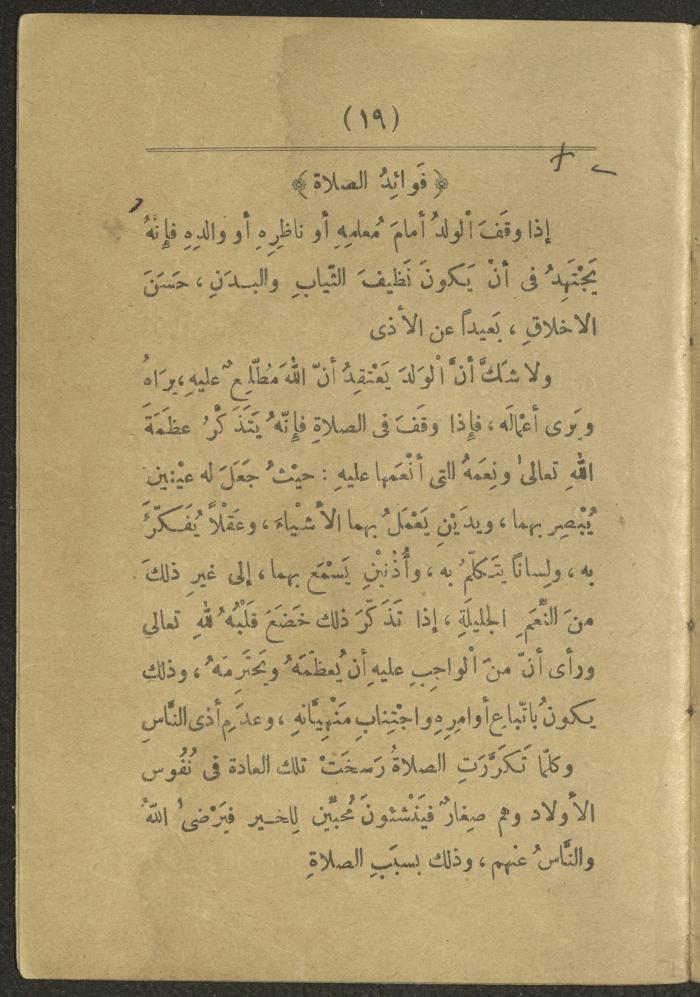 (١٩)
﴿ فَوائِدُ الصلاة ﴾
إذا وقَفَ الولدُ أمامَ مُعلمِهِ أو ناظرِهِ أو والدِهِ فإنَّهُ
يَجْتَهِدُ فى أنْ يَكونَ نَظيفَ الثّيابِ والبـدَنِ ، حَسَنَ
الاخلاقِ ، بَعيداً عن الأذى
ولا شكَّ أنَّ الْوَلدَ يَعْتقِدُ أنّ اللهَ مُطّلِعٌ عليهِ، يرَاهُ
ويَرى أعْمالَه ، فإذا وقفَ فى الصلاةِ فإنّهُ يَتَذَكَّرُ عظَمَةَ
اللهِ تعالىٰ ونِعَمَهُ التى أنْعَمَها عليهِ : حيْثُ جَعَلَ له عيْنين
يُبْصِر بهما ، ويدَيْنِ يَعْمَلُ بهما الأشْياءَ ، وعَقْلاً يُفَـكّرُ
به ، ولساناً يتَـكلّمُ به ، وأُذُنيْنِ يَسْمَع بهما ، إلى غيرِ ذلكَ
منَ النِّعَمِ الجليلَةِ ، إذا تَذَكّرَ ذلك خَضَعَ قَلْبُهُ للهِ تعالى
ورأى أنّ منَ الْواجِبِ عليهِ أن يُعظّمَهُ ويَحْتَرِمَهُ ، وذلكِ
يكونُ باتّباعِ أوامِرِهِ واجْتِنابِ مَنْهِيَّاتهِ ، وعدَمِ أذى النّاسِ
وكلّما تَكرَّرَتِ الصلاةُ رَسخَتْ تلك العادة فى نُفُوس
الأولاد وهم صِغارٌ فيَنْشئونَ مُحبِّين لِلخـيرِ فيَرْضىٰ اللهُ
والنَّاسُ عنهم ، وذلك بسبَبِ الصلاةِ